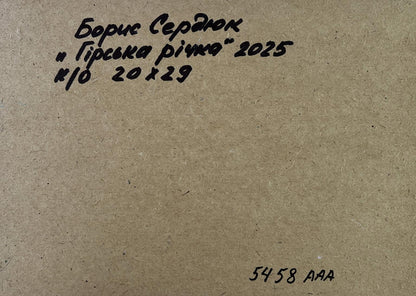 Борис Сердюк
„Гірська річка" 2025
к/о 20 х 29
5458 ААА